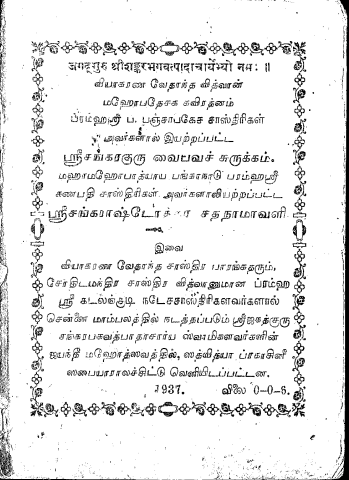 ஜகத்குரு ஶ்ரீசங்கரபகவத்பாதாசார்யேப்யோ நம: ॥
வியாகரண வேதாந்த வித்வான்
மஹோபதேசக கவிரத்னம்
ப்ரம்ஹஸ்ரீ ப. பஞ்சாபகேச சாஸ்திரிகள்
அவர்களால் இயற்றப்பட்ட
ஸ்ரீசங்கரகுரு வைபவச் சுருக்கம்.
மஹாமஹோபாத்யாய பங்காநாடு பரம்ஹஸ்ரீ
கணபதி சாஸ்திரிகள் அவர்களாலியற்றப்பட்ட
ஸ்ரீசங்கராஷ்டோத்தர சதநாமாவளி
இவை
வியாகரண வேதாந்த சாஸ்திர பாரங்கதரும்,
சோதிடமந்திர சாஸ்திர வித்வானுமான ப்ரம்ஹ
ஸ்ரீ கடலங்குடி நடேசசாஸ்திரிகளவர்களால்
சென்னை மாம்பலத்தில் நடத்தப்படும் ஸ்ரீஜகத்குரு
சங்கரபகவத்பாதாசார்ய ஸ்வாமிகளவர்களின்
ஜயந்தீ மஹோத்ஸவத்தில், ஸத்வித்யா ப்ரகாசினீ
ஸபையாராலச்சிட்டு வெளியிடப்பட்டன.
1937. விலை 0-0-6.